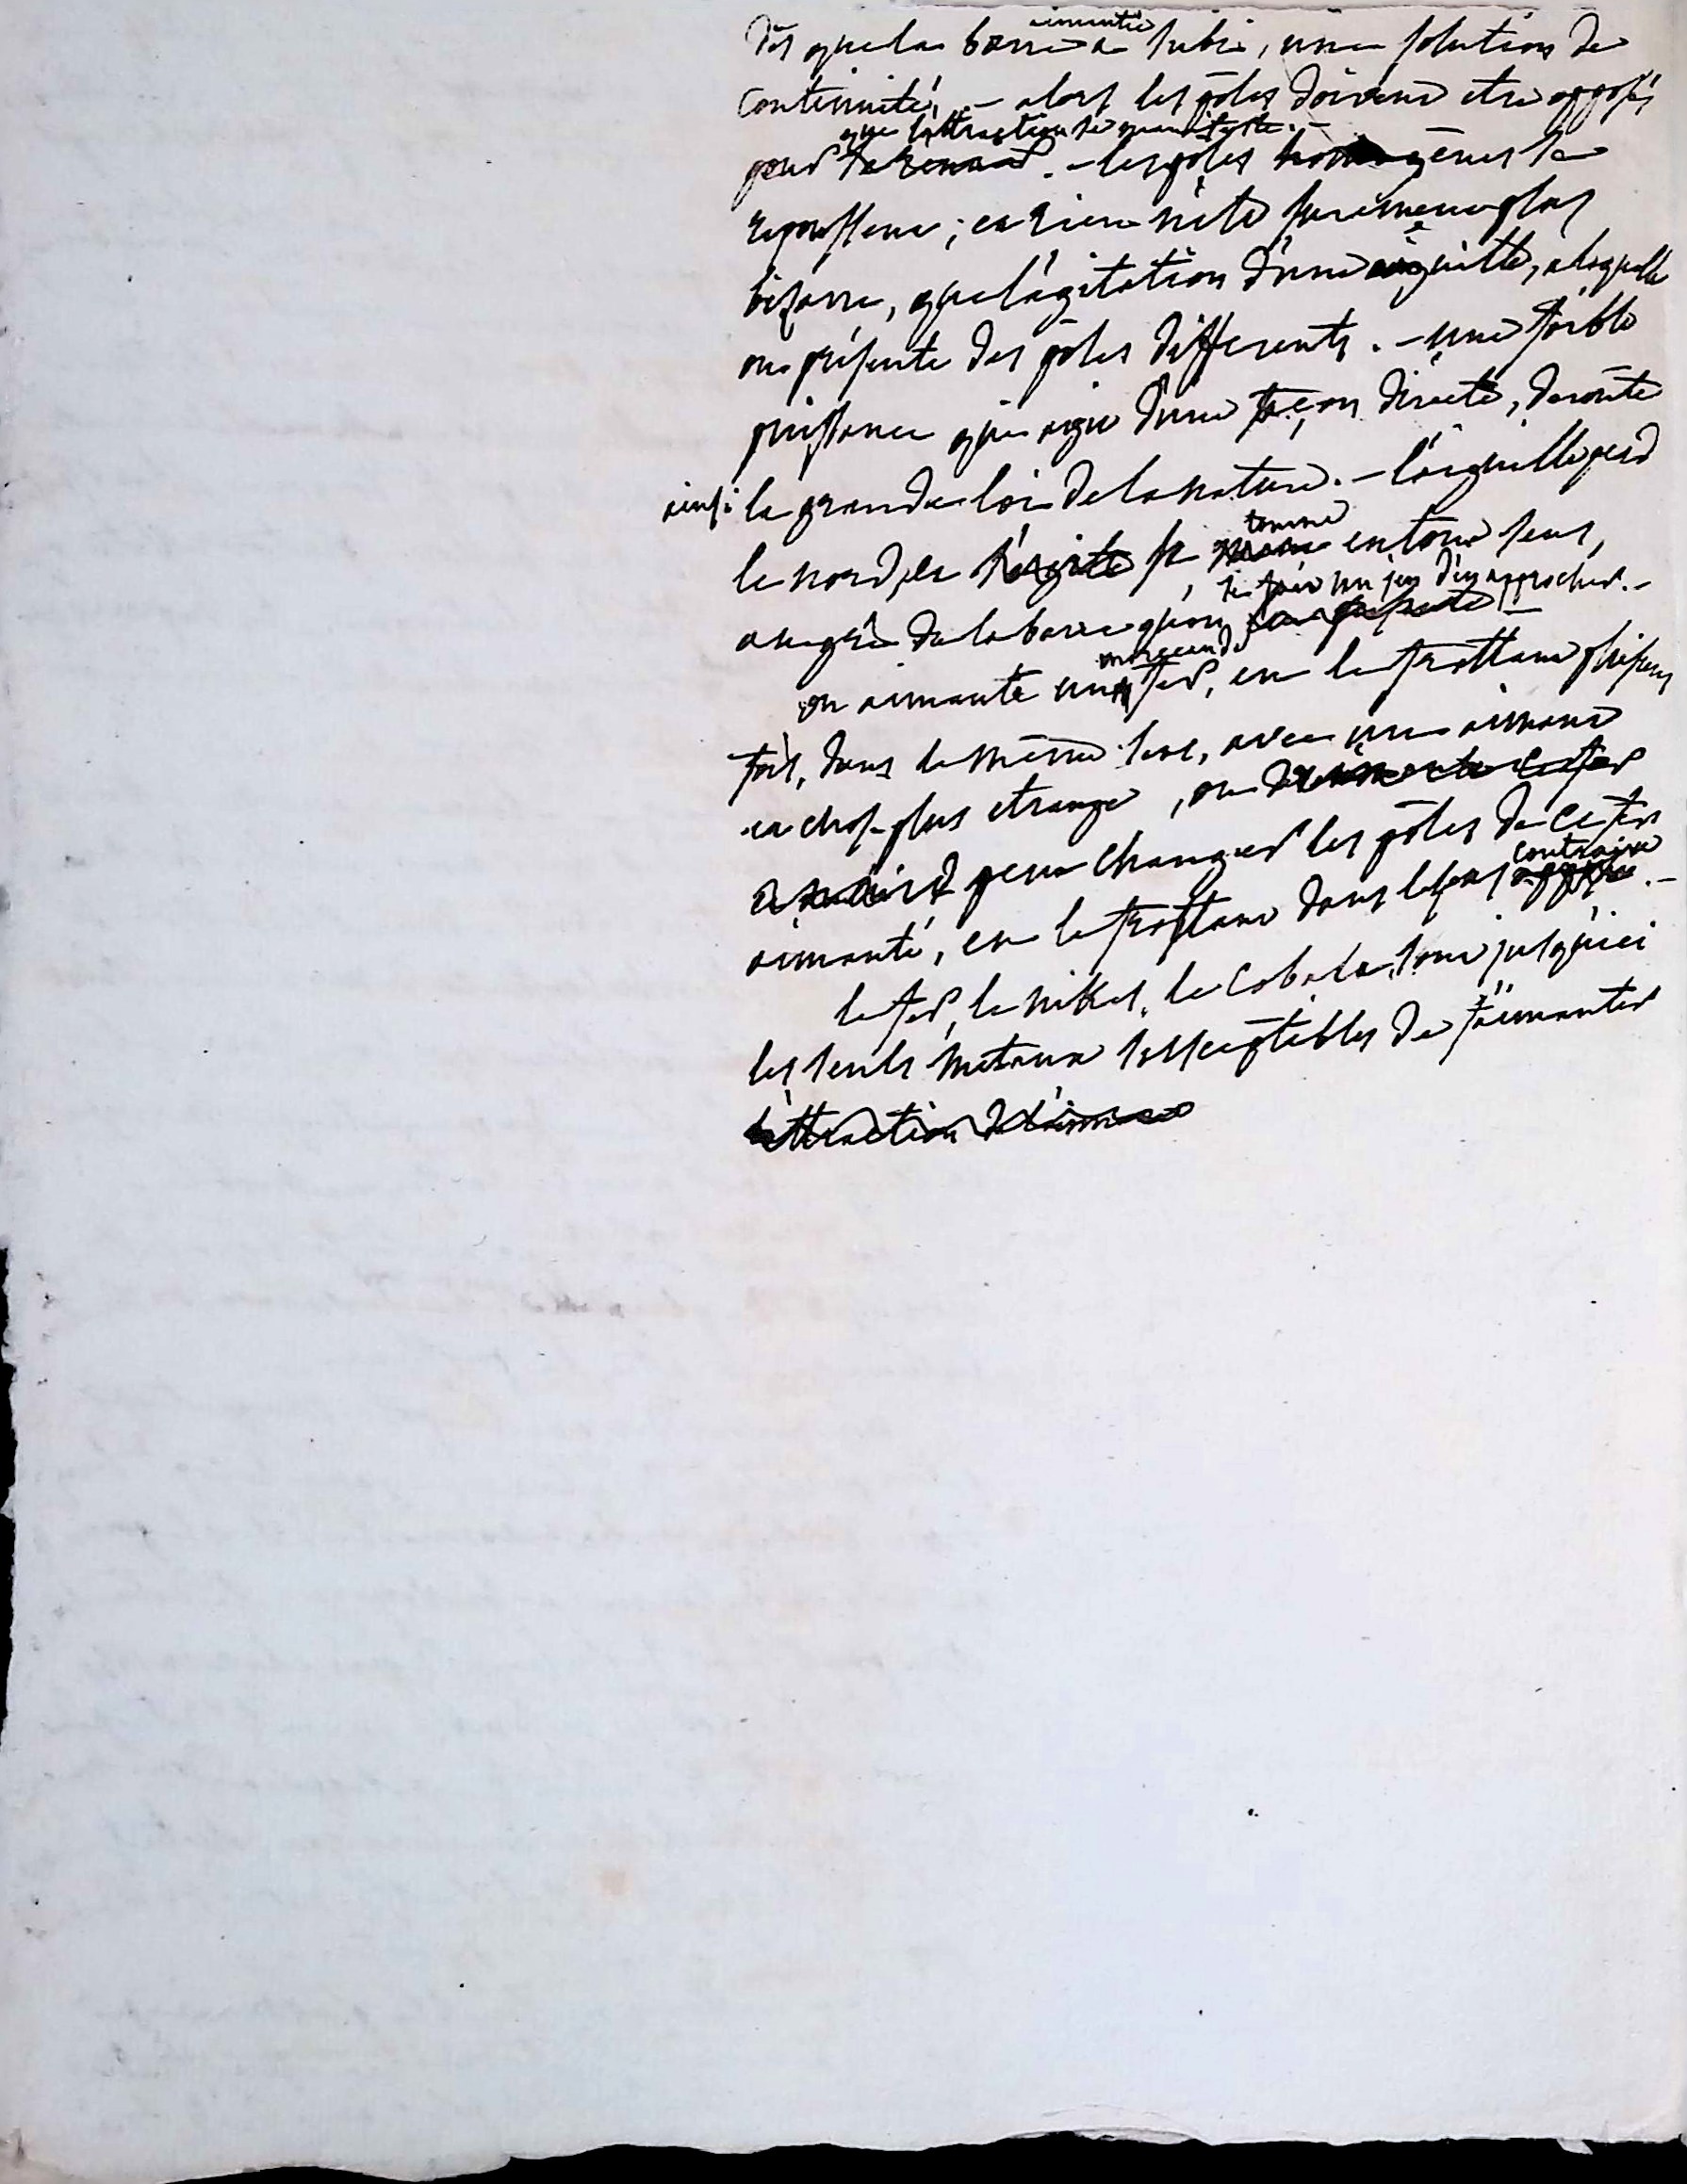 aimantée
dès que la barre a subi, une solution de
continuité, - alors les pôles doivent etre opposés
que l'attraction se manifeste. -
pour - les pôles homogènes se
repoussent ; et rien n'est surement plus
bizarre, que l'agitation d'une aiguille, a laquelle
on présente des pôles differents. - une foible
puissance qui agit d'une façon directe, deroute
ainsi la grande loi de la nature. - l'aiguille perd
tourne
le nord, et s'agite se en tout sens,
se fait un jeu d'en approcher. -
au gré de la barre qu'on lui presente -
morceau de
on aimante un fer, en le frottant plusieurs
fois, dans le même sens, avec un aimant
et chose plus etrange, on
peut changer les pôles de ce fer
contraire
aimanté, en le frottant dans le sens opposé. -
le fer, le nikel, le cobalt, sont jusqu'ici
les seuls metaux susceptibles de s'aimanter
l'attraction de l'aimant